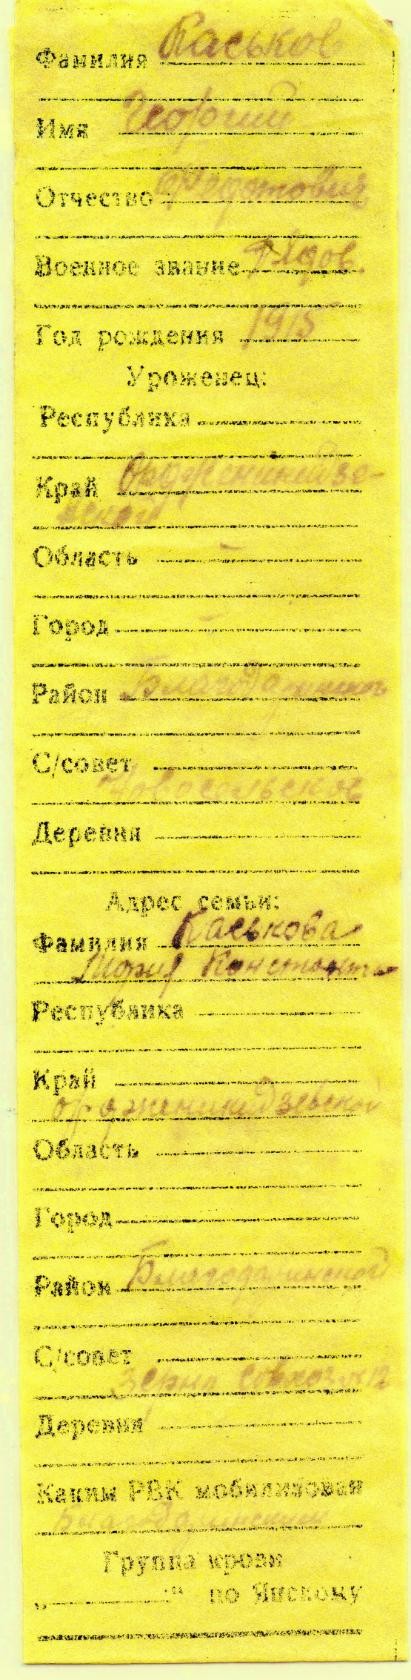 Фамилия Каськов
Имя Георгий
Отчество Федотович
Военное звание Рядов.
Год рождения 1915
Уроженец:
Республика
Край Орджоникидзе-
вский
Область —
Город —
Район Благодарненск
С/совет
Новосельское
Деревня
Адрес семьи:
Фамилия Каськова
Мария Константин
Республика
Край
Орджоникидзевской
Область
Город
Район Благодарненской
С/совет
Зерно Совхоз №12
Деревня
Каким РВК мобилизован
Группа крови
„ " по Янскому